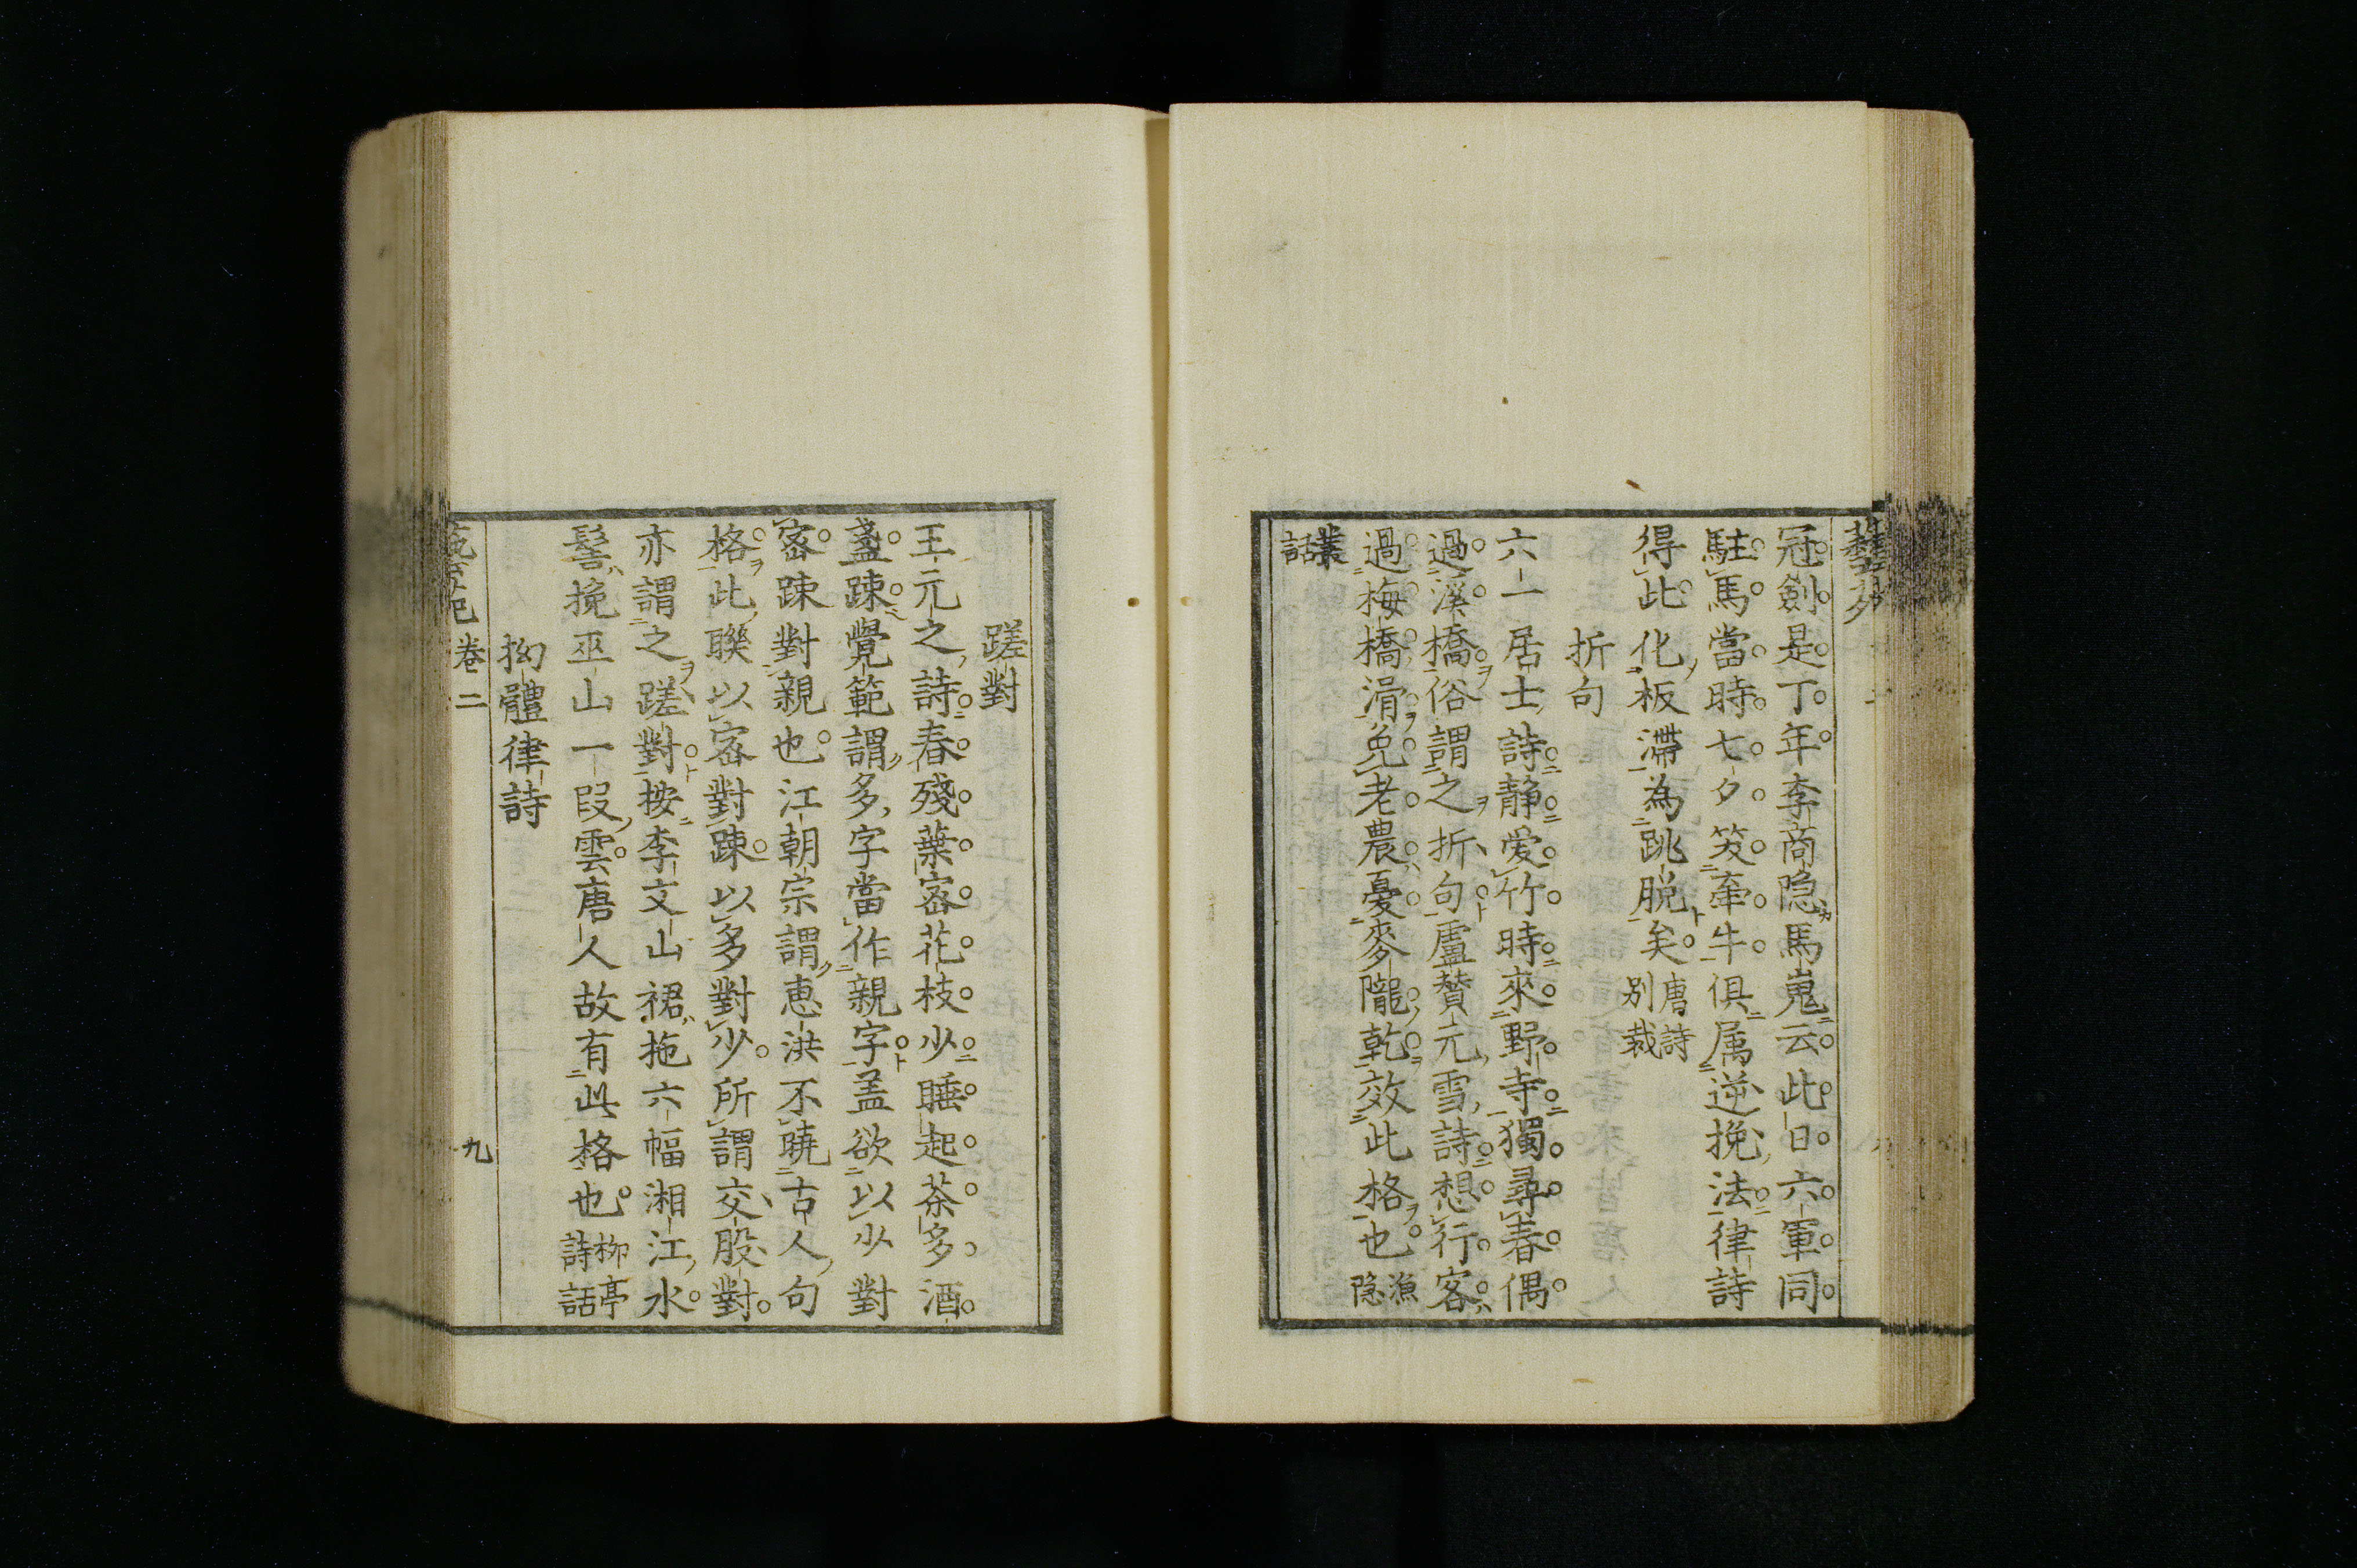 冠劍是丁年李商隐馬嵬云此日六軍同
駐馬當時七夕笑牽牛俱属逆挽法律詩
得此化板滯為跳脱矣唐詩別裁
折句
六一居士詩静爱竹時來野寺獨尋春偶
過溪橋俗謂之折句盧賛元雪詩想行客
過梅橋滑免老農憂麥隴乾效此格也漁隐
叢話
蹉對
王元之詩春殘葉密花枝少睡起茶多酒
盞踈覺範謂多字當作親字盖欲以少對
密踈對親也江朝宗謂恵洪不曉古人句
格此聯以密對踈以多對少所謂交股對
亦謂之蹉對按李文山裙拖六幅湘江水
髻挽巫山一段雲唐人故有此格也柳亭詩話
拗體律詩
卷二
九